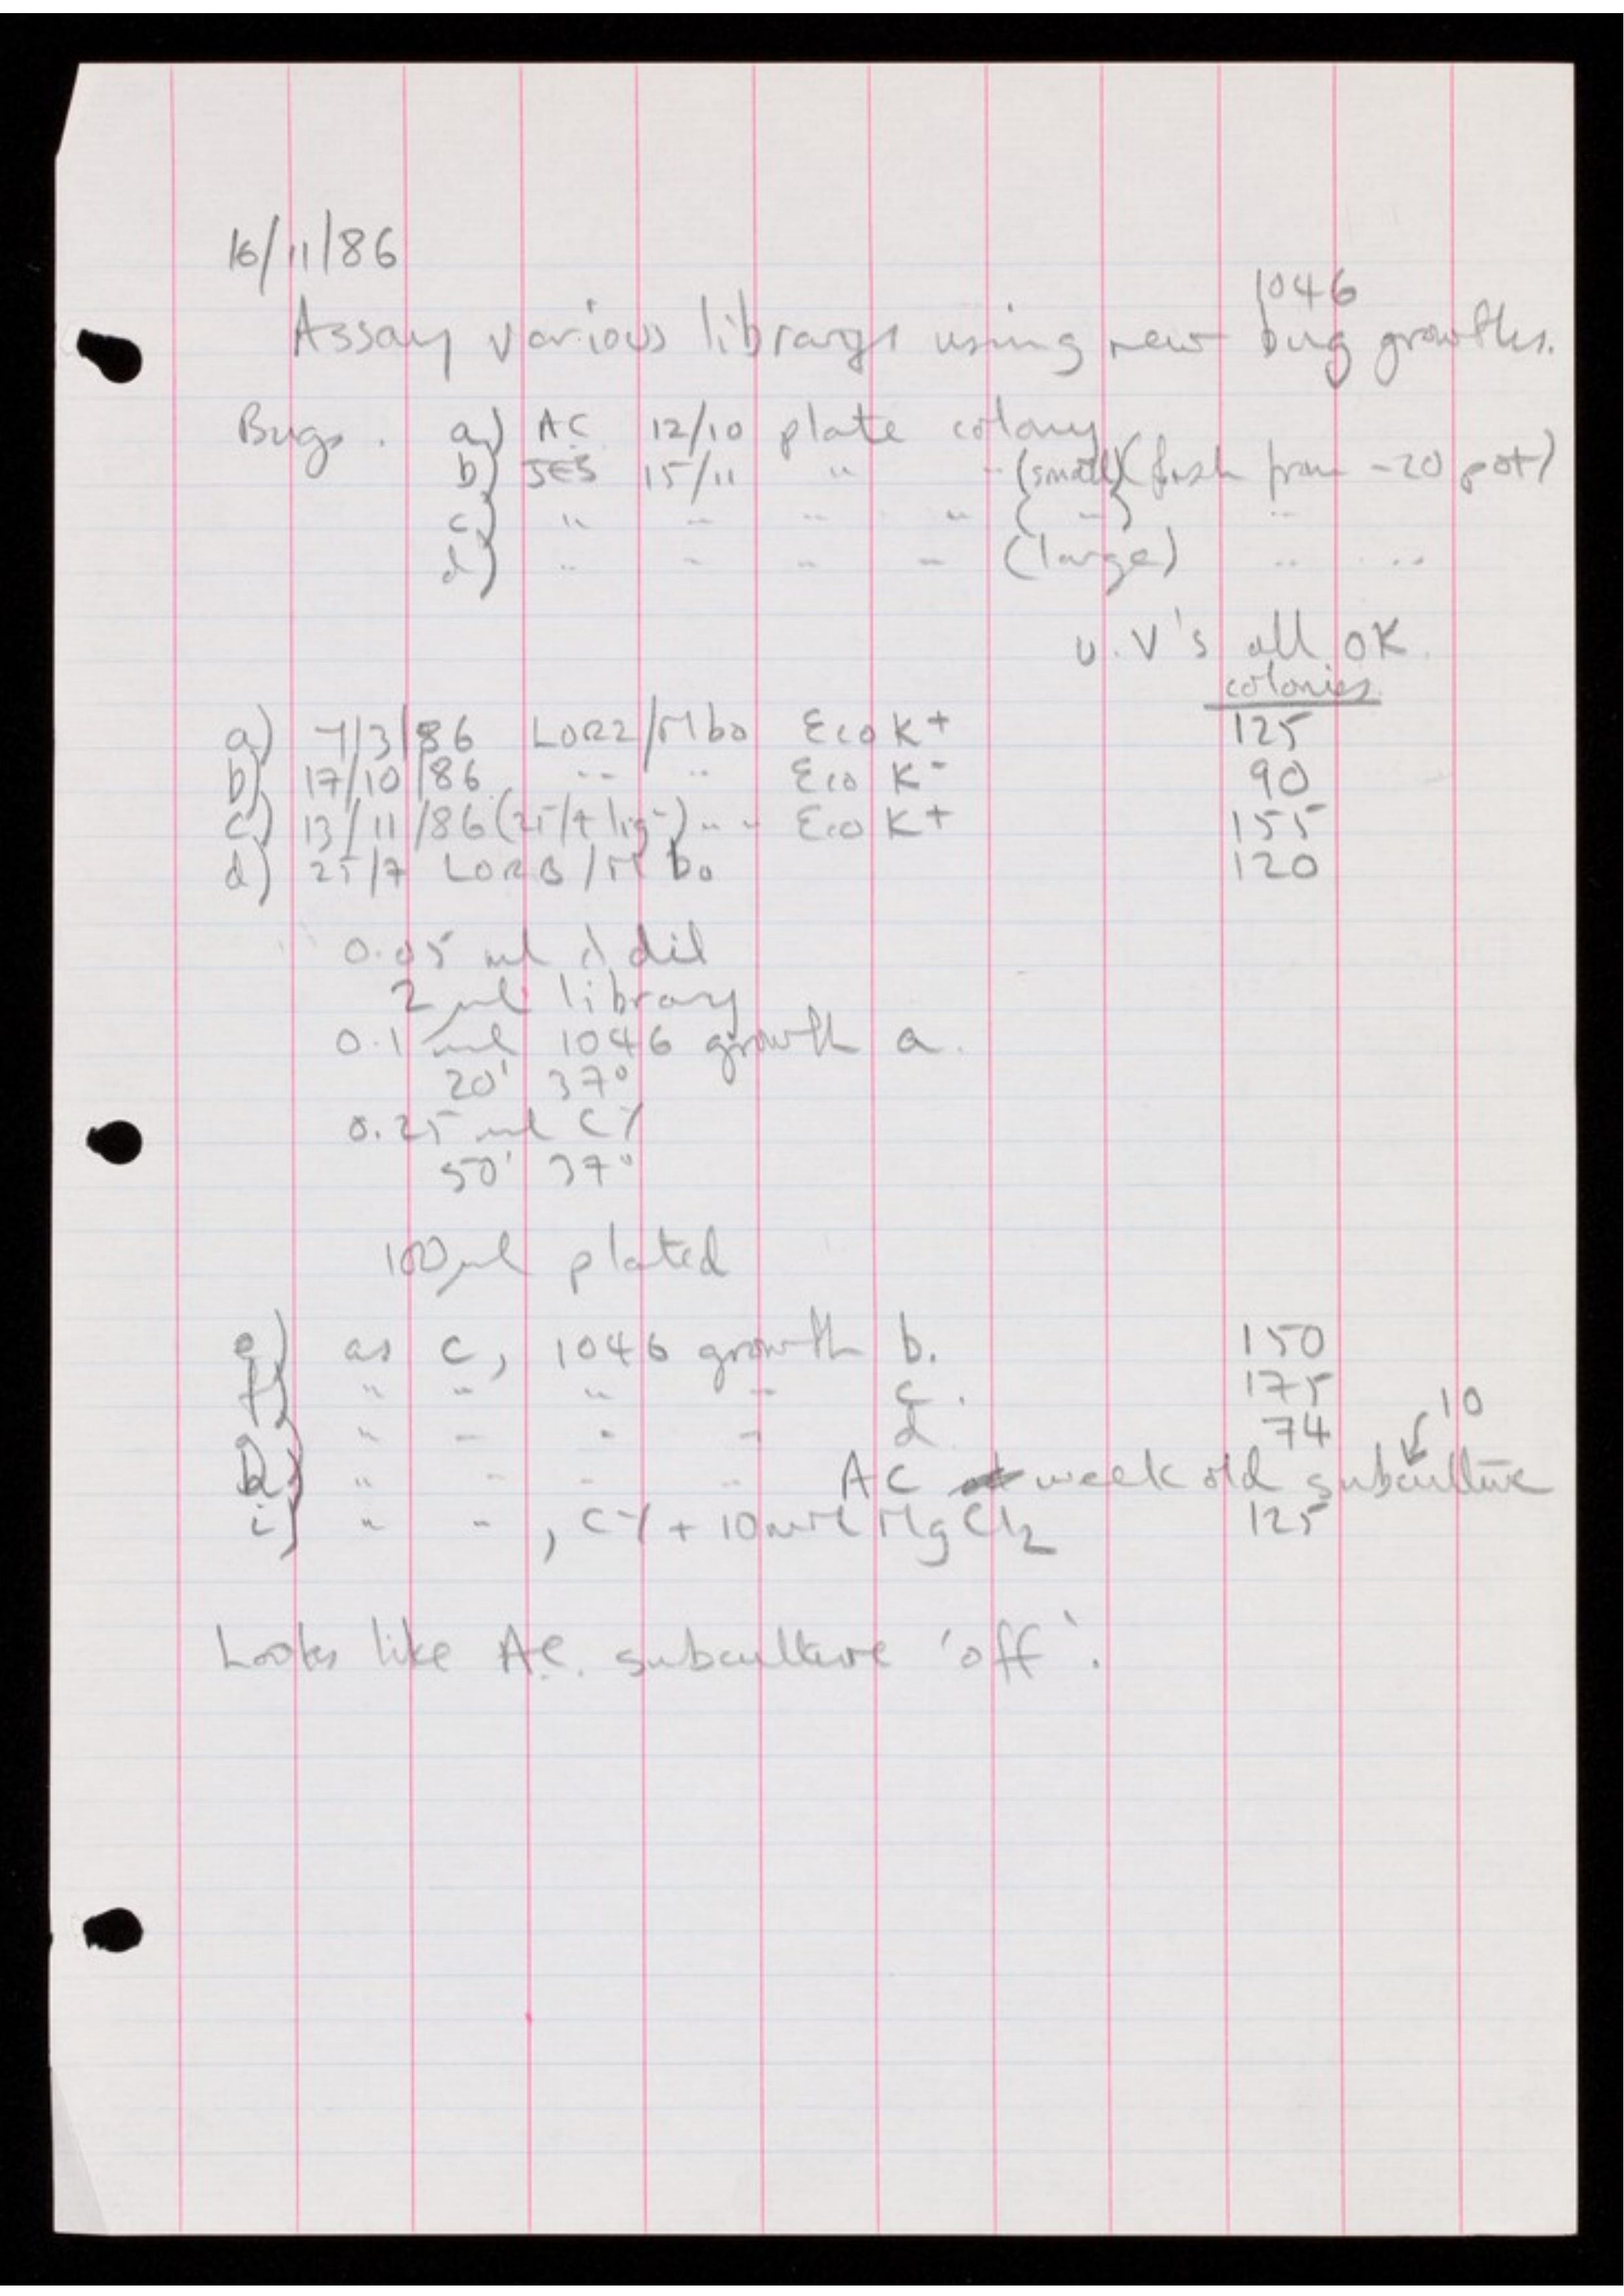 16/11/86
1046
Assay various librarys using new bug growths.
Bugs. a) AC 12/10 plate colony
b) JES 15/11 " " (small) (fresh from -20 pot)
c) " " " " ( " ) "
d) " " " " (large) " "
U.V's all OK.
colonies
a) 7/3/86 LOR2/Mbo Eco K+ 125
b) 17/10/86 " " Eco K- 90
c) 13/11/86 (25/7 lig-) " " Eco K+ 155
d) 25/7 LORB/Mbo 120
0.05 ml λ dil
2 μl library
0.1 ml 1046 growth a.
20' 37°
0.25 ml CY
50' 37°
100 μl plated
e) as c, 1046 growth b. 150
f) " " " " c. 175
g) " " " " d 74
10
h) " " " " AC week old subculture
i) " " , CY + 10mM MgCl2 125
Looks like AC. subculture 'off'.